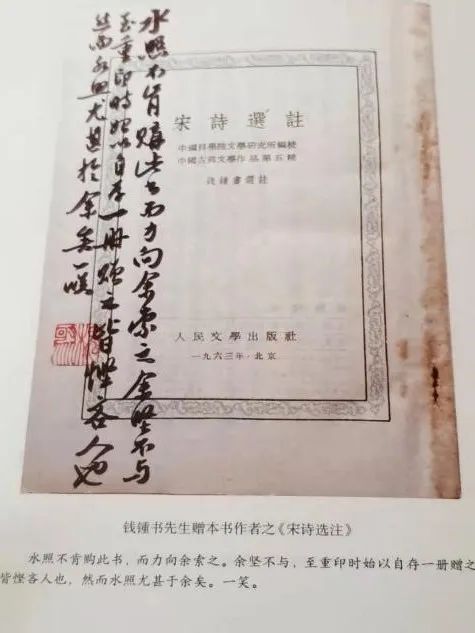 水照不肯購此书而力向余索之余堅不与
至重印時始以自存一册贈之皆慳吝人也
然而水照尤甚於余矣一笑
宋詩選註
中國科學院文學研究所編輯
中國古典文學作品第五種
錢鍾書選註
人民文學出版社
一九六三年·北京
钱锺书先生赠本书作者之《宋诗选注》
水照不肯购此书,而力向余索之。余坚不与,至重印时始以自存一册赠之
皆悭吝人也,然而水照尤甚于余矣。一笑。